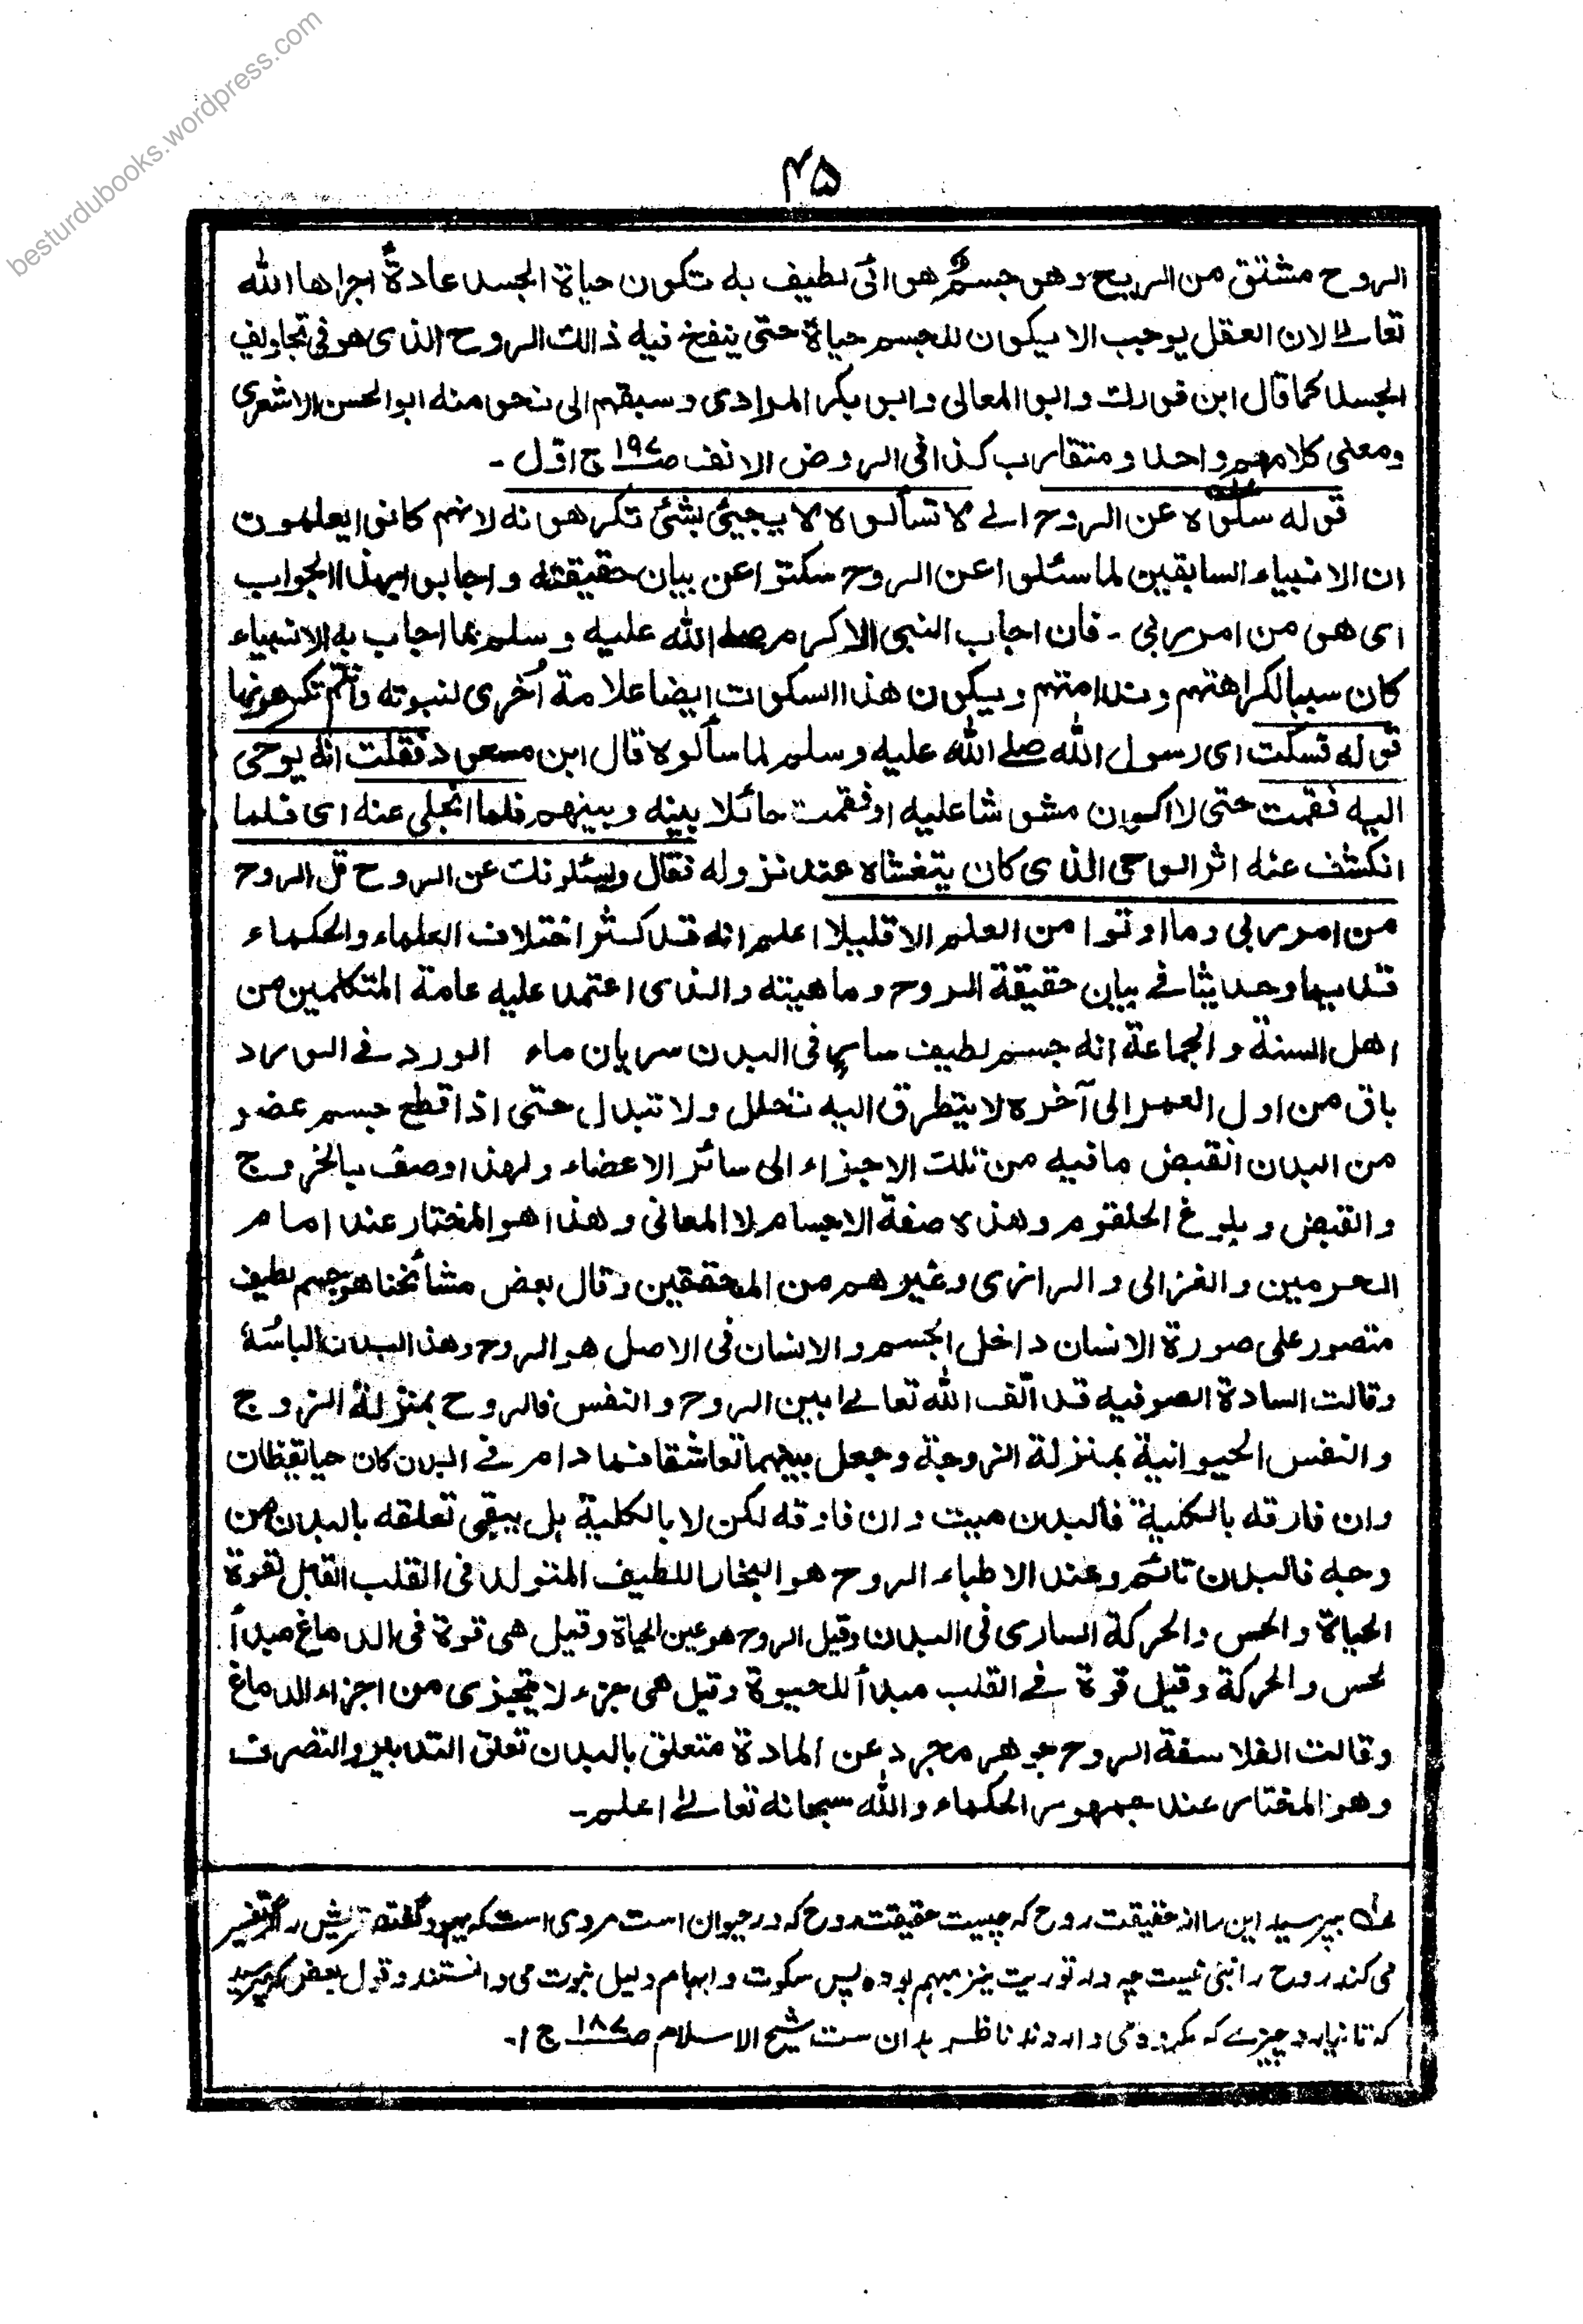 besturdubooks.wordpress.com
۴۵
الروح مشتق من الريح وهو جسمٌ هوائی لطيف به تكون حياة الجسد عادةً اجراها الله
تعالے لان العقل يوجب الا يكون للجسم حياة حتى ينفخ فيه ذالك الروح الذی هو فی تجاويف
الجسد كما قال ابن فورك وابو المعالی وابو بكر المرادی وسبقهم الی نحو منه ابو الحسن الاشعری
ومعنی كلامهم واحد ومتقارب كذا فی الروض الانف ص۱۹۷ ج اول ۔
قوله سلوه عن الروح الے لا تسألوه لا يجيئی بشئی تكرهونه لانهم كانوا يعلمون
ان الانبياء السابقين لما سئلوا عن الروح سكتوا عن بيان حقيقته واجابوا بهذا الجواب
ای هو من امر ربی ۔ فان اجاب النبی الاكرم صلے الله عليه وسلم بما اجاب به الانبياء
كان سببا لكراهتهم وندامتهم ويكون هذا السكوت ايضا علامة أخری لنبوته وانتم تكرهونها
قوله فسكت ای رسول الله صلے الله عليه وسلم لما سألوه قال ابن مسعود فقلت انه يوحی
اليه فقمت حتی لا اكون مشوشا عليه او فقمت حائلا بينه وبينهم فلما انجلی عنه ای فلما
انكشف عنه اثر الوحی الذی كان يتغشاه عند نزوله فقال ويسئلونك عن الروح قل الروح
من امر ربی وما اوتوا من العلم الا قليلا اعلم انه قد كثر اختلاف العلماء والحكماء
قديما وحديثا فے بيان حقيقة الروح وماهيته والذی اعتمد عليه عامة المتكلمين من
اهل السنة والجماعة انه جسم لطيف سارٍ فی البدن سريان ماء الورد فے الورد
باق من اول العمر الی آخره لا يتطرق اليه تحلل ولا تبدل حتی اذا قطع جسم عضو
من البدن انقبض ما فيه من تلك الاجزاء الی سائر الاعضاء ولهذا وصف بالخروج
والقبض وبلوغ الحلقوم وهذه صفة الاجسام لا المعانی وهذا هو المختار عند امام
الحرمين والغزالی والرازی وغيرهم من المحققين وقال بعض مشائخنا هو جسم لطيف
متصور علی صورة الانسان داخل الجسم والانسان فی الاصل هو الروح وهذا البدن لباسُهٗ
وقالت السادة الصوفيه قد الّف الله تعالے بين الروح والنفس فالروح بمنزلة الزوج
والنفس الحيوانية بمنزلة الزوجة وجعل بينهما تعاشقا فما دام فے البدن كان حيا يقظان
وان فارقه بالكلية فالبدن ميت وان فارقه لكن لا بالكلية بل يبقی تعلقه بالبدن من
وجه فالبدن نائم وعند الاطباء الروح هو البخار اللطيف المتولد فی القلب القابل لقوة
الحياة والحس والحركة الساری فی البدن وقيل الروح هو عين الحياة وقيل هی قوة فی الدماغ مبدأ
لحس والحركة وقيل قوة فے القلب مبدأ للحيوة وقيل هی جزء لا يتجزی من اجزاء الدماغ
وقالت الفلاسفة الروح جوهر مجرد عن المادة متعلق بالبدن تعلق التدبير والتصرف
وهو المختار عند جمهور الحكماء والله سبحانه تعالےٰ اعلم۔
عله بپرسید این را از حقیقت روح که چیست حقیقت روح که در حیوان است مروی است که یهود گفتند قریش را اگر تفسیر
می کند روح را نبی نیست چه در توریت نیز مبهم بوده پس سکوت و ابهام دلیل نبوت می دانستند و قول بعض
که تا نیارد چیزے که مکروه می دارند ناظر بدان ست شیخ الاسلام ص۱۸۷ ج ۱۔